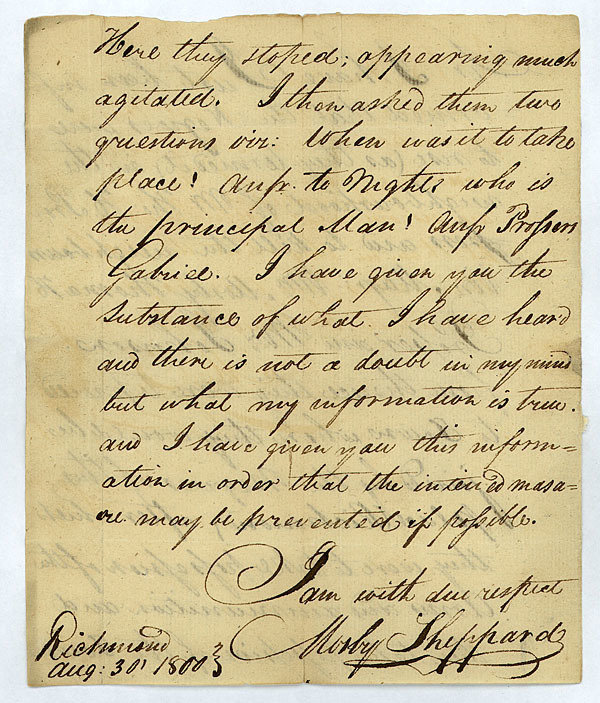 Here they stoped; appearing much
agitated. I then asked them two
questions viz: When was it to take
place! Ansr. to Night: who is
the principal Man! Ansr Prossers
Gabriel. I have given you the
substance of what I have heard
and there is not a doubt in my mind
but what my information is true.
and I have given you this inform=
ation in order that the intened masa=
cre may be prevented if possible.
I am with due respect
Mosby Sheppard
Richmond
Aug: 30t 1800